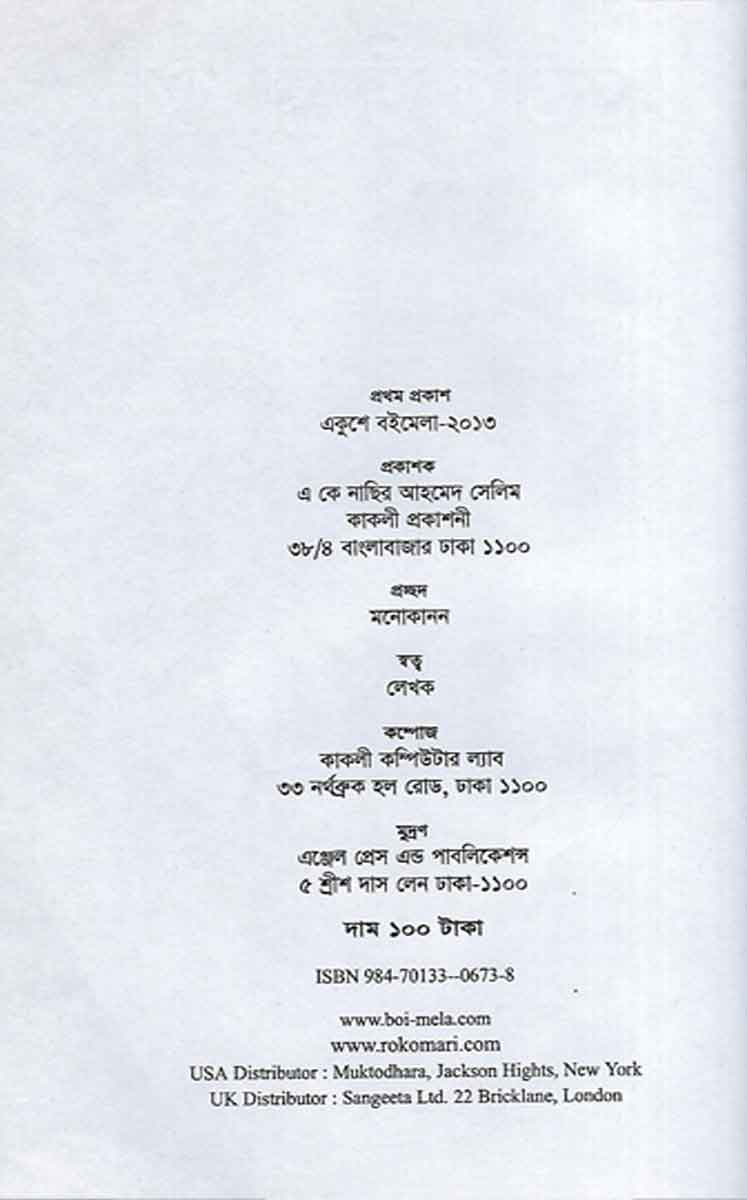 প্রথম প্রকাশ
একুশে বইমেলা-২০১৩
প্রকাশক
এ কে নাছির আহমেদ সেলিম
কাকলী প্রকাশনী
৩৮/৪ বাংলাবাজার ঢাকা ১১০০
প্রচ্ছদ
মনোকানন
স্বত্ব
লেখক
কম্পোজ
কাকলী কম্পিউটার ল্যাব
৩৩ নর্থব্রুক হল রোড, ঢাকা ১১০০
মুদ্রণ
এঞ্জেল প্রেস এন্ড পাবলিকেশন্স
৫ শ্রীশ দাস লেন ঢাকা-১১০০
দাম ১০০ টাকা
ISBN 984-70133--0673-8
www.boi-mela.com
www.rokomari.com
USA Distributor : Muktodhara, Jackson Hights, New York
UK Distributor : Sangeeta Ltd. 22 Bricklane, London